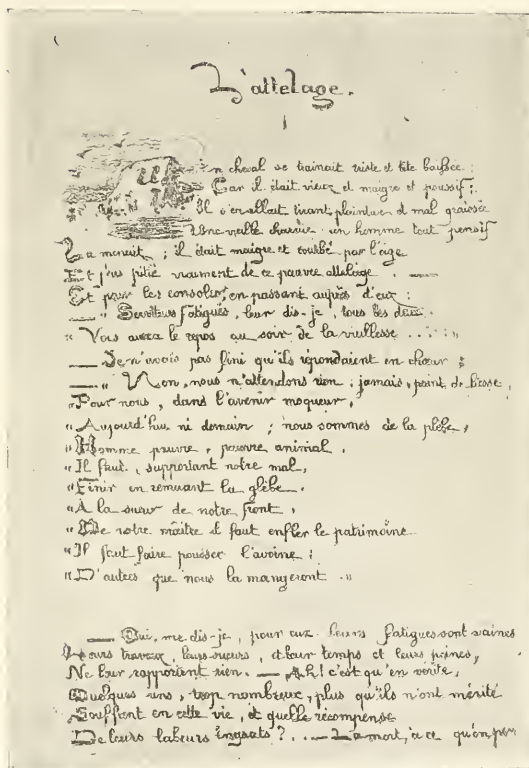 L'attelage.
Un cheval se trainait triste et tête baissée :
Car il était vieux et maigre et poussif ;
Il s'en allait tirant, plaintive et mal graissée
Une vieille charrue : un homme tout pensif
La menait ; il était maigre et courbé par l'âge
Et j'eus pitié vraiment de ce pauvre attelage . —
Et pour les consoler, en passant auprès d'eux :
— " Serviteurs fatigués, leur dis-je, tous les deux
" Vous aurez le repos au soir de la vieillesse ..... "
— Je n'avais pas fini qu'ils répondaient en chœur ;
— " Non, nous n'attendons rien ; jamais, point de liesse,
" Pour nous, dans l'avenir moqueur,
" Aujourd'hui ni demain ; nous sommes de la plèbe,
" Homme pauvre, pauvre animal,
" Il faut, supportant notre mal,
" Finir en remuant la glèbe.
" A la sueur de notre front,
" De notre maître il faut enfler le patrimoine
" Il faut faire pousser l'avoine ;
" D'autres que nous la mangeront . "
— Oui, me dis-je, pour eux leurs fatigues sont vaines
Leurs travaux, leurs sueurs, et leur temps et leurs peines,
Ne leur rapportent rien. — Ah ! c'est qu'en vérité,
Quelques uns, trop nombreux, plus qu'ils n'ont mérité
Souffrent en cette vie, et quelle récompense
De leurs labeurs ingrats ? .. — La mort, à ce qu'on